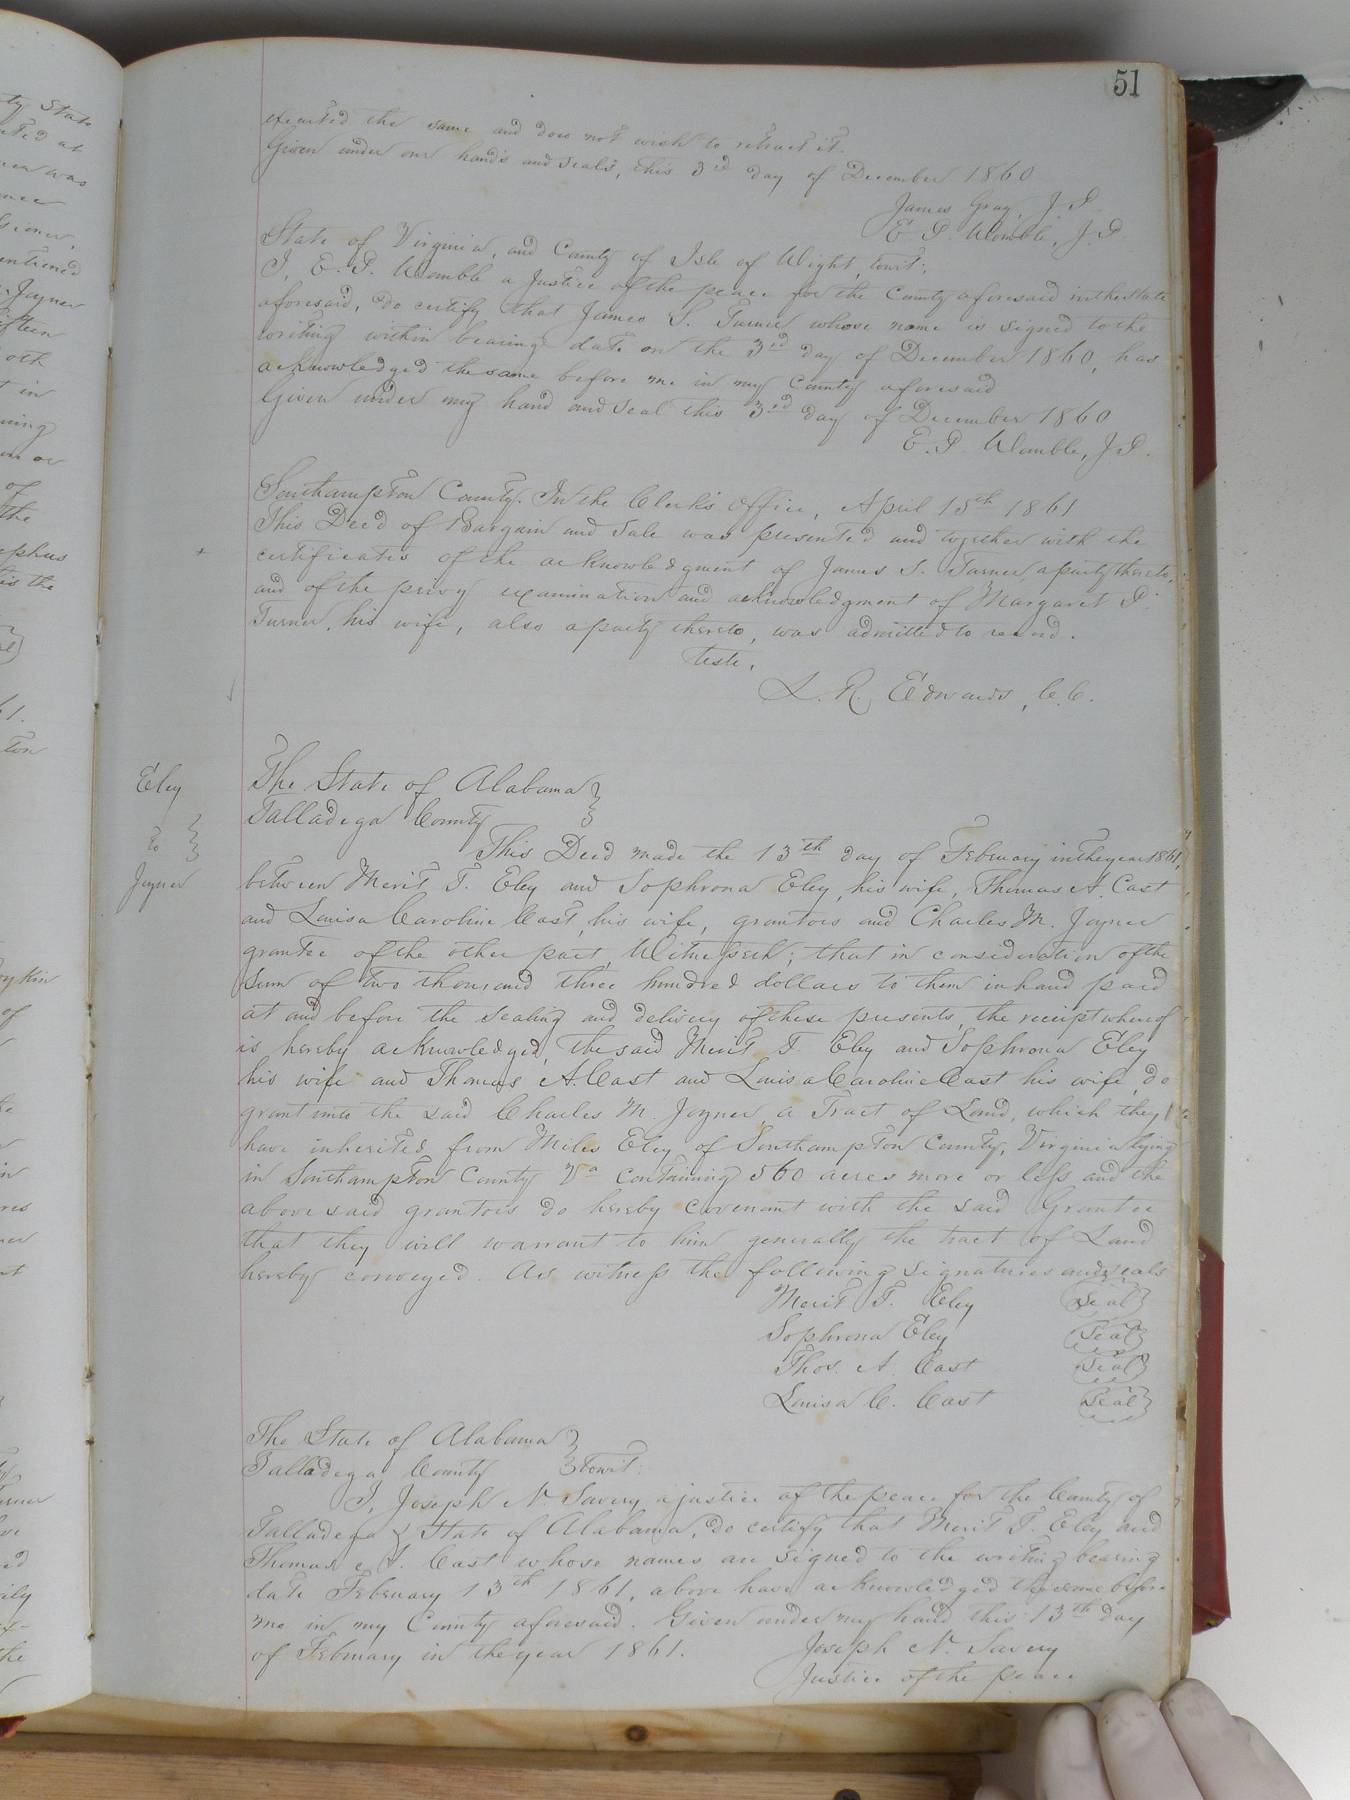 51
executed the same and does not wish to retract it.
Given under our hands and seals, this 3rd day of December 1860
James Gray, J.P.
E. P. Womble, J.P.
State of Virginia, and County of Isle of Wight, towit:
I, E. P. Womble a Justice of the peace for the County aforesaid in the State
aforesaid, do certify that James S. Turner whose name is signed to the
writing within bearing date on the 3rd day of December 1860, has
acknowledged the same before me in my County aforesaid
Given under my hand and seal this 3rd day of December 1860
E. P. Womble, J.P.
Southampton County. In the Clerk's Office, April 15th 1861
This Deed of Bargain and Sale was presented and together with the
certificates of the acknowledgment of James S. Turner, a party thereto,
and of the privy examination and acknowledgment of Margaret P.
Turner, his wife, also a party thereto, was admitted to record.
Teste,
L. R. Edwards, C.C.
Eley
to
Joyner
The State of Alabama
Talladega County
This Deed made the 13th day of February in the year 1861,
between Merit T. Eley and Sophrona Eley, his wife, Thomas A. Cast
and Louisa Caroline Cast, his wife, grantors and Charles M. Joyner
grantee of the other part, Witnesseth; that in consideration of the
sum of two thousand three hundred dollars to them in hand paid
at and before the sealing and delivery of these presents, the receipt whereof
is hereby acknowledged, the said Merit T. Eley and Sophrona Eley
his wife and Thomas A Cast and Louisa Caroline Cast his wife, do
grant unto the said Charles M. Joyner, a Tract of Land, which they
have inherited from Miles Eley of Southampton County, Virginia lying
in Southampton County Va containing 560 acres more or less and the
above said grantors do hereby covenant with the said Grantee
that they will warrant to him generally the tract of Land
hereby conveyed. As witness the following signatures and seals
Merit T. Eley Seal
Sophrona Eley Seal
Thos. A. Cast Seal
Louisa C. Cast Seal
The State of Alabama
Talladega County towit:
I, Joseph N. Savery a justice of the peace for the County of
Talladega & State of Alabama, do certify that Merit T. Eley and
Thomas A. Cast whose names are signed to the writing bearing
date February 13th 1861, above have acknowledged the same before
me in my County aforesaid. Given under my hand this 13th day
of February in the year 1861. Joseph N. Savery
Justice of the peace